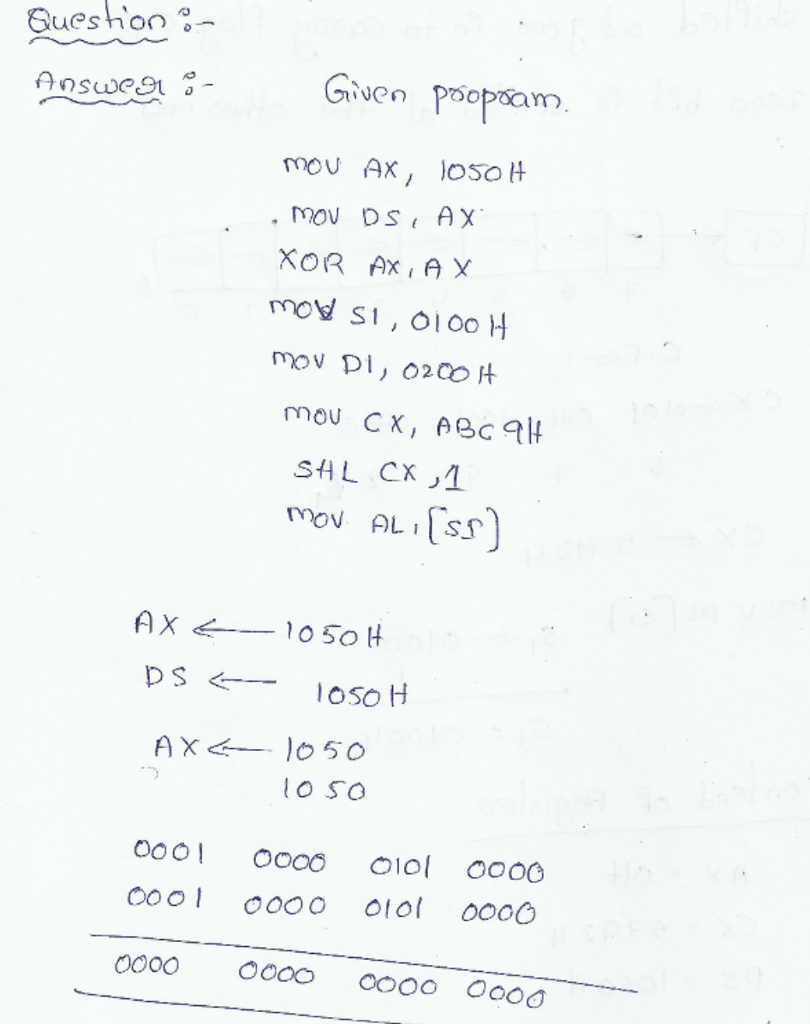 Question :-
Answer :-
Given propram.
mov AX, 1050H
mov DS, AX
XOR AX, AX
mov SI, 0100H
mov DI, 0200H
mov CX, ABC9H
SHL CX, 1
mov AL, [SI]
AX ← 1050H
DS ← 1050H
AX ← 1050
1050
0001 0000 0101 0000
0001 0000 0101 0000
0000 0000 0000 0000